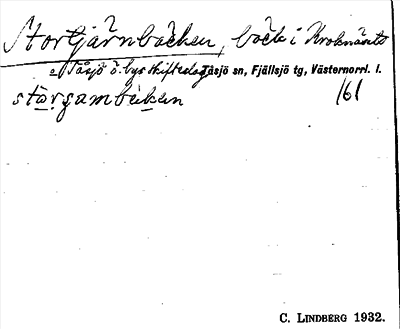 Stortjärnbäcken, bäck i Kroknäsets
o Tåsjö ö. bys skifteslag Tåsjö sn, Fjällsjö tg, Västernorrl. l.
størsambekan 161
C. LINDBERG 1932.